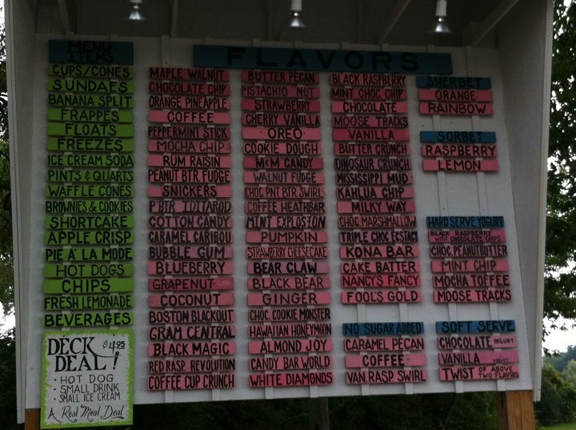 MENU ITEMS
CUPS/CONES
SUNDAES
BANANA SPLIT
FRAPPES
FLOATS
FREEZES
ICE CREAM SODA
PINTS & QUARTS
WAFFLE CONES
BROWNIES & COOKIES
SHORTCAKE
APPLE CRISP
PIE A LA MODE
HOT DOGS
CHIPS
FRESH LEMONADE
BEVERAGES
DECK DEAL! $4.95
• HOT DOG
• SMALL DRINK
• SMALL ICE CREAM
A Real Meal Deal
FLAVORS
MAPLE WALNUT
CHOCOLATE CHIP
ORANGE PINEAPPLE
COFFEE
PEPPERMINT STICK
MOCHA CHIP
RUM RAISIN
PEANUT BTR FUDGE
SNICKERS
P BTR
COTTON CANDY
CARAMEL CARIBOU
BUBBLE GUM
BLUEBERRY
GRAPENUT
COCONUT
BOSTON BLACKOUT
GRAM CENTRAL
BLACK MAGIC
RED RASP REVOLUTION
COFFEE CUP CRUNCH
BUTTER PECAN
PISTACHIO NUT
STRAWBERRY
CHERRY VANILLA
OREO
COOKIE DOUGH
M&M CANDY
WALNUT FUDGE
CHOC PNT BTR SWIRL
COFFEE HEATHBAR
MINT EXPLOSION
PUMPKIN
STRAWBERRY CHEESECAKE
BEAR CLAW
BLACK BEAR
GINGER
CHOC. COOKIE MONSTER
HAWAIIAN HONEYMOON
ALMOND JOY
CANDY BAR WORLD
WHITE DIAMONDS
BLACK RASPBERRY
MINT CHOC CHIP
CHOCOLATE
MOOSE TRACKS
VANILLA
BUTTER CRUNCH
DINOSAUR CRUNCH
MISSISSIPPI MUD
KAHLUA CHIP
MILKY WAY
CHOC MARSHMALLOW
TRIPLE CHOC ECSTACY
KONA BAR
CAKE BATTER
NANCY'S FANCY
FOOLS GOLD
NO SUGAR ADDED
CARAMEL PECAN
COFFEE
VAN RASP SWIRL
SHERBET
ORANGE
RAINBOW
SORBET
RASPBERRY
LEMON
HARD SERVE YOGURT
BLACK RASPBERRY WITH CHOCOLATE CHIPS
CHOC PEANUTBUTTER
MINT CHIP
MOCHA TOFFEE
MOOSE TRACKS
SOFT SERVE
CHOCOLATE YOGURT
VANILLA
TWIST OF ABOVE TWO FLAVORS